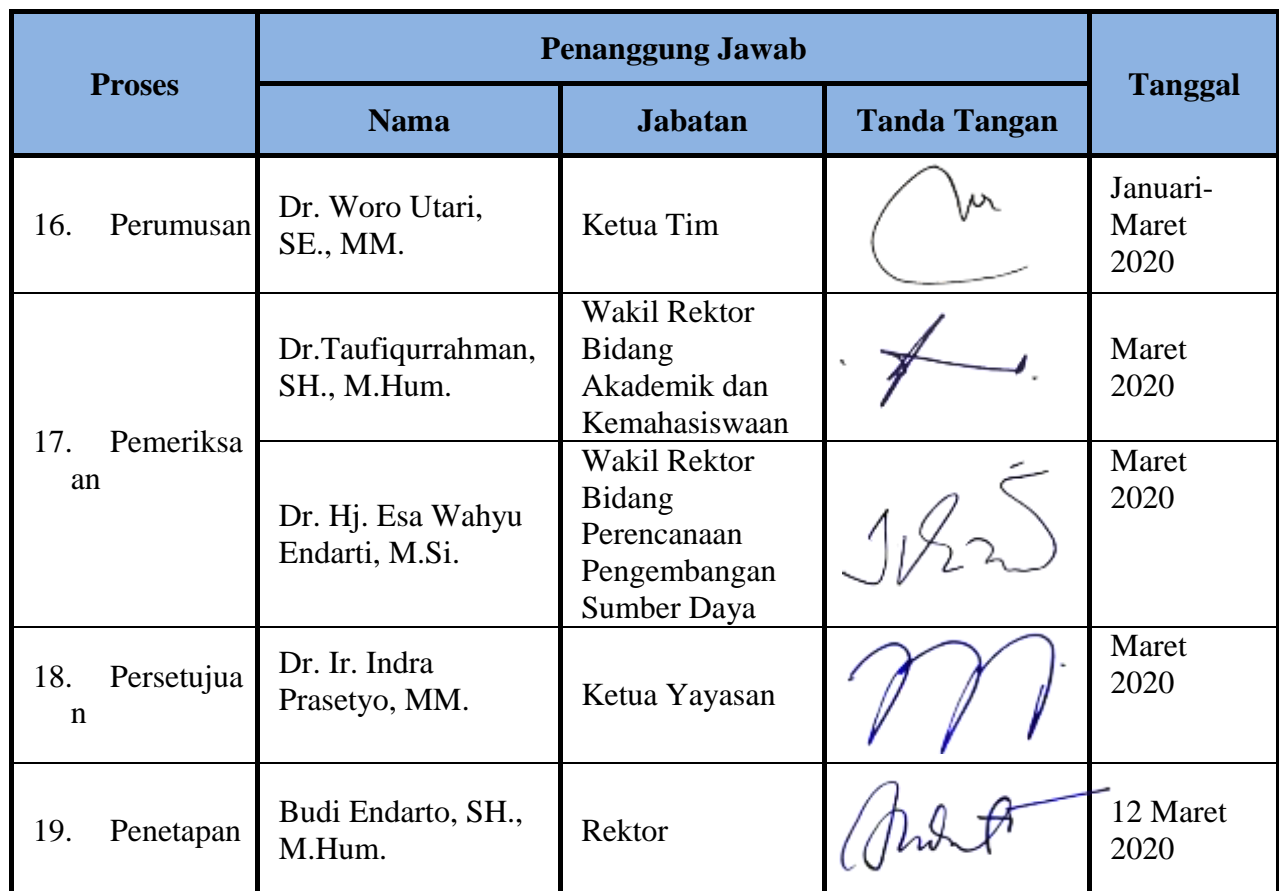 Proses
Penanggung Jawab
Tanggal
Nama
Jabatan
Tanda Tangan
16. Perumusan
Dr. Woro Utari,
SE., MM.
Ketua Tim
Januari-
Maret
2020
17. Pemeriksa
an
Dr.Taufiqurrahman,
SH., M.Hum.
Wakil Rektor
Bidang
Akademik dan
Kemahasiswaan
Maret
2020
Dr. Hj. Esa Wahyu
Endarti, M.Si.
Wakil Rektor
Bidang
Perencanaan
Pengembangan
Sumber Daya
Maret
2020
18. Persetujua
n
Dr. Ir. Indra
Prasetyo, MM.
Ketua Yayasan
Maret
2020
19. Penetapan
Budi Endarto, SH.,
M.Hum.
Rektor
12 Maret
2020